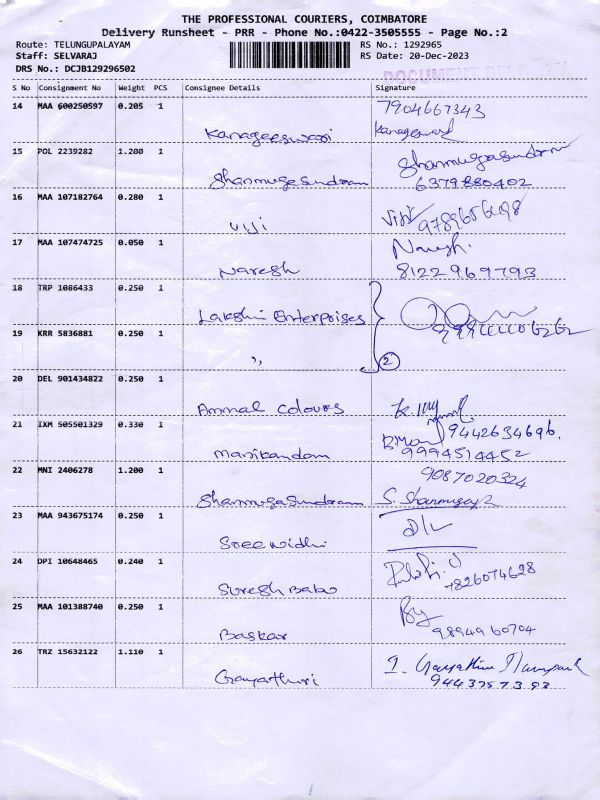 THE PROFESSIONAL COURIERS, COIMBATORE
Delivery Runsheet - PRR - Phone No.:0422-3505555 - Page No.:2
Route: TELUNGUPALAYAM RS No.: 1292965
Staff: SELVARAJ RS Date: 20-Dec-2023
DRS No.: DCJB129296502
S No Consignment No Weight PCS Consignee Details Signature
14 MAA 600250597 0.205 1 7904667343
Kanageeswari
15 POL 2239282 1.200 1 Shanmugasundram
Shanmugasundram 6379880402
16 MAA 107182764 0.280 1
Viji
17 MAA 107474725 0.050 1 Naresh.
Naresh 8122969793
18 TRP 1086433 0.250 1
Lakshmi Enterprises
19 KRR 5836881 0.250 1
,, 2
20 DEL 901434822 0.250 1
Ammal Colours
21 IXM 505501329 0.330 1 9442634696.
Manikandan 9994514452
22 MNI 2406278 1.200 1 9087020324
Shanmugasundram
23 MAA 943675174 0.250 1
Sreenidhi
24 DPI 10648465 0.240 1
Suresh Babu 7826074628
25 MAA 101388740 0.250 1
Baskar 9894960704
26 TRZ 15632122 1.110 1
Gayathiri 9443757393